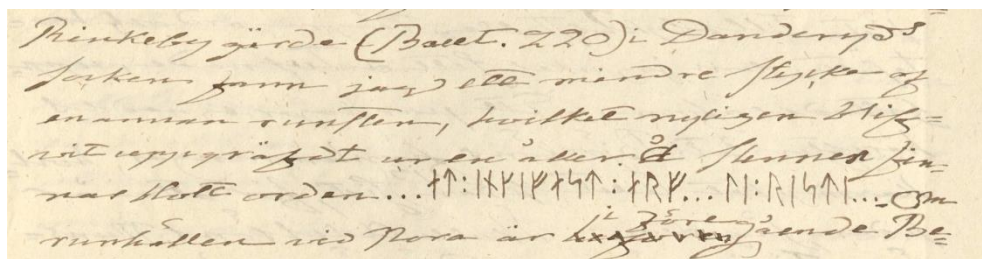 Rinkeby gärde (Baut. 220) i Danderyds
socken fann jag ett mindre stycke af
en annan runsten, hvilket nyligen blif=
vit uppgräfdt ur en åker. Å stenen fin=
nas blott orden...ᛅᛏ:ᛁᚾᚴᛁᚠᛅᛋᛏ:ᛅᚱᚠ...ᛚᛁ:ᚱᛁᛋᛏᛁ... Om
runhällen vid Nora är i föregående Be=